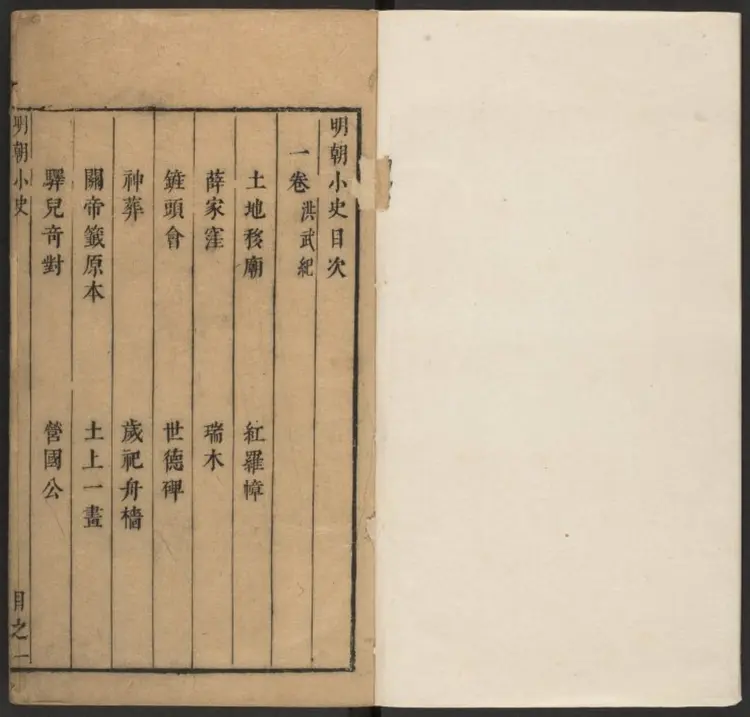 明朝小史目次
一卷 洪武紀
土地移廟 紅羅幛
薛家窪 瑞木
錐頭會 世德碑
神葬 歲祀舟檣
關帝籤原本 土上一畫
驛兒奇對 營國公
明朝小史 目之一